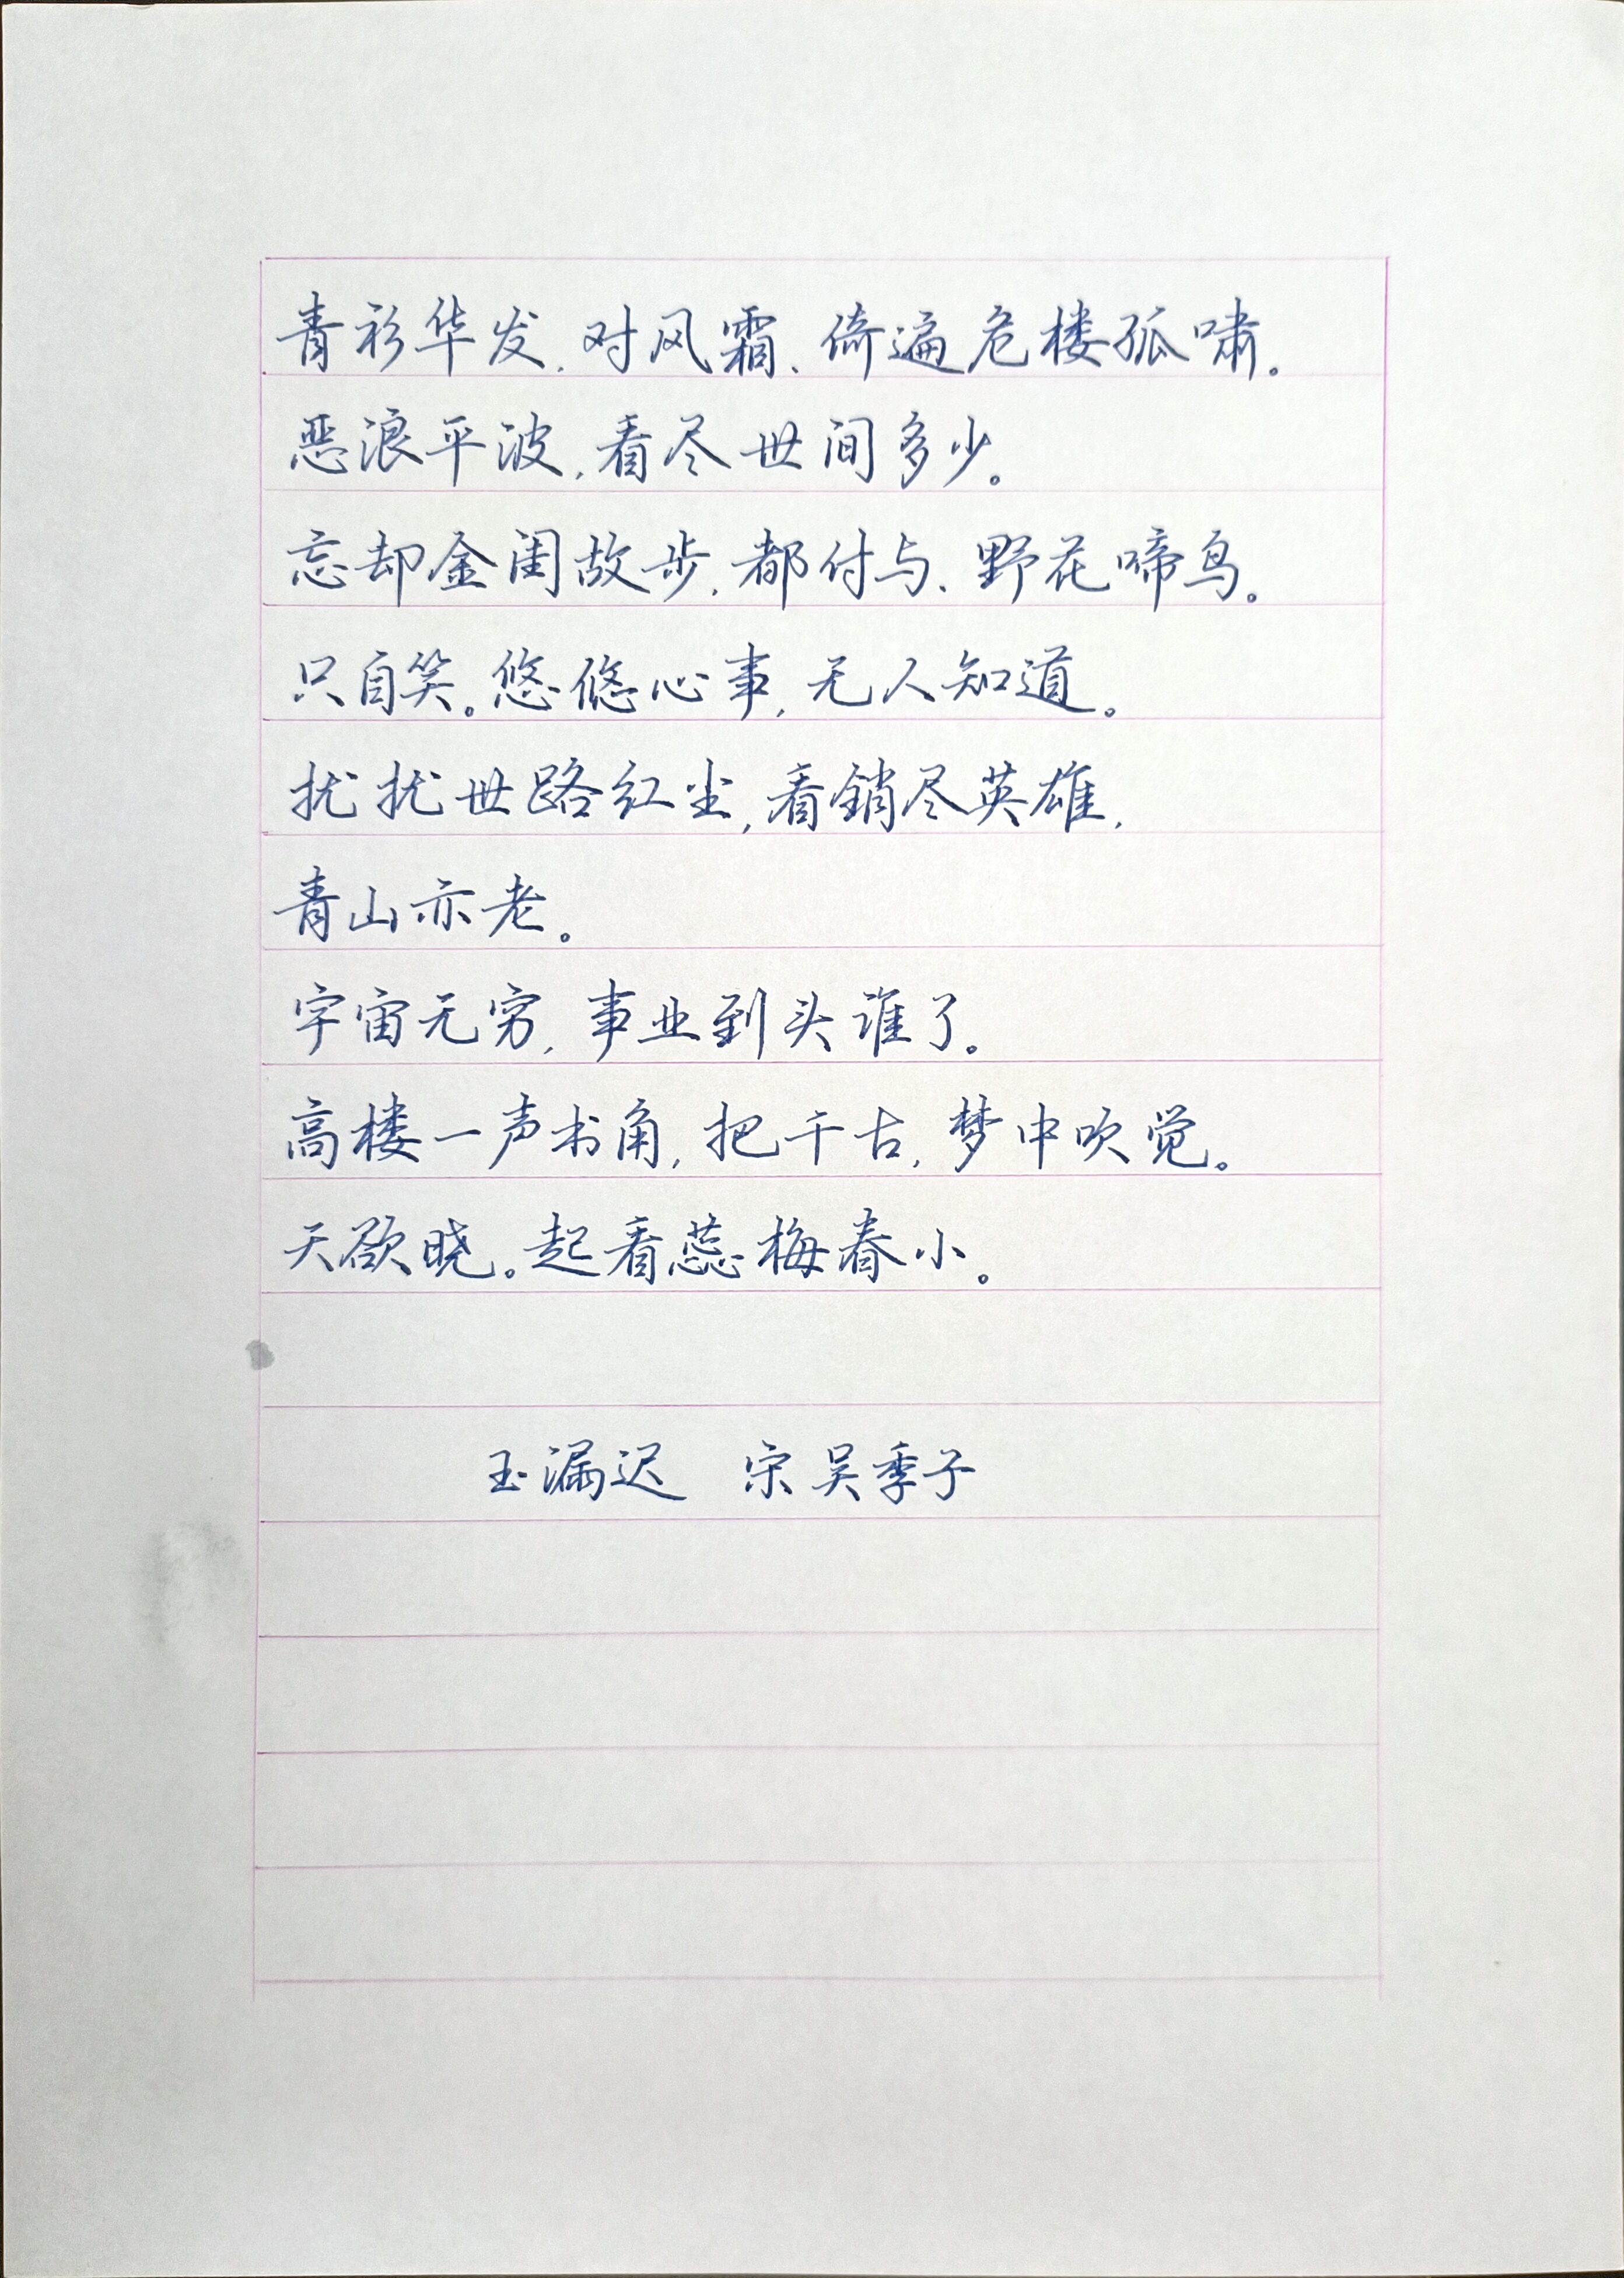 青衫华发,对风霜、倚遍危楼孤啸。
恶浪平波,看尽世间多少。
忘却金闺故步,都付与、野花啼鸟。
只自笑。悠悠心事,无人知道。
扰扰世路红尘,看销尽英雄,
青山亦老。
宇宙无穷,事业到头谁了。
高楼一声书角,把千古,梦中吹觉。
天欲晓。起看蕊梅春小。
玉漏迟 宋 吴季子